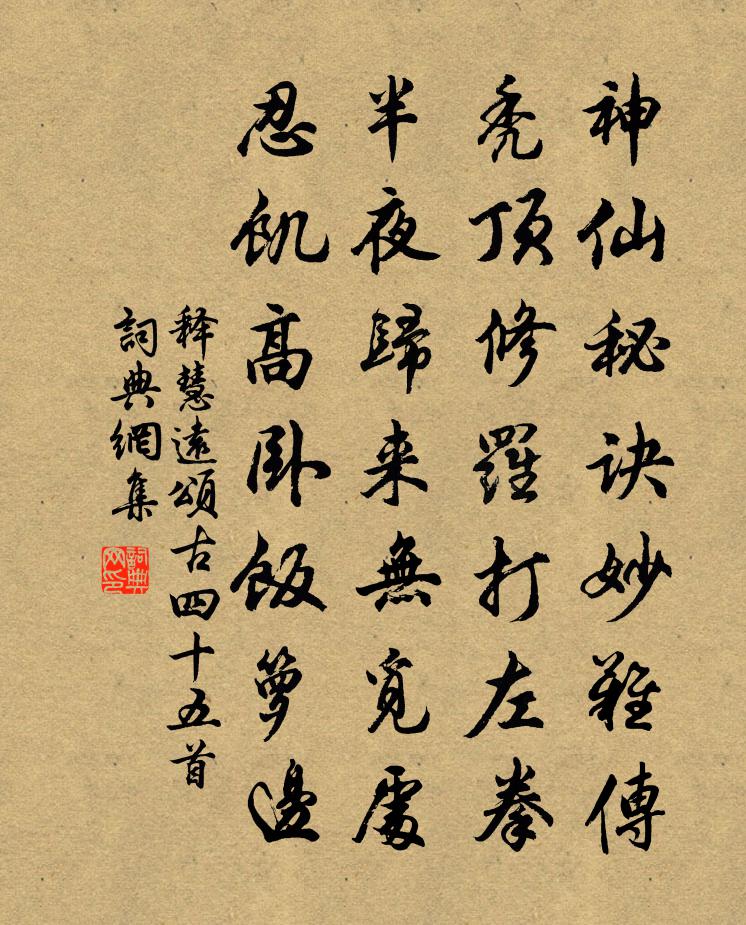 神仙秘訣妙難傳
禿頂修羅打左拳
半夜歸来無覓處
忍飢高卧飯籮邊
释慧遠頌古四十五首
詞典網集
詞典网印